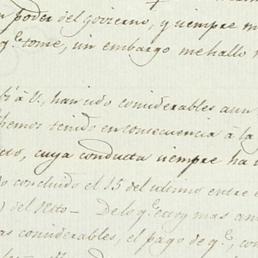 poder del govierno, y siempre m
q.e tome, sin embargo me hallo
bi à V, han sido considerables aun
hemos tenido en consecuencia à la
cuya conducta siempre ha
concluido el 15 del ultimo entre
) del Retto — De lo q.e cuxy mas an
considerables, el pago de q.e con